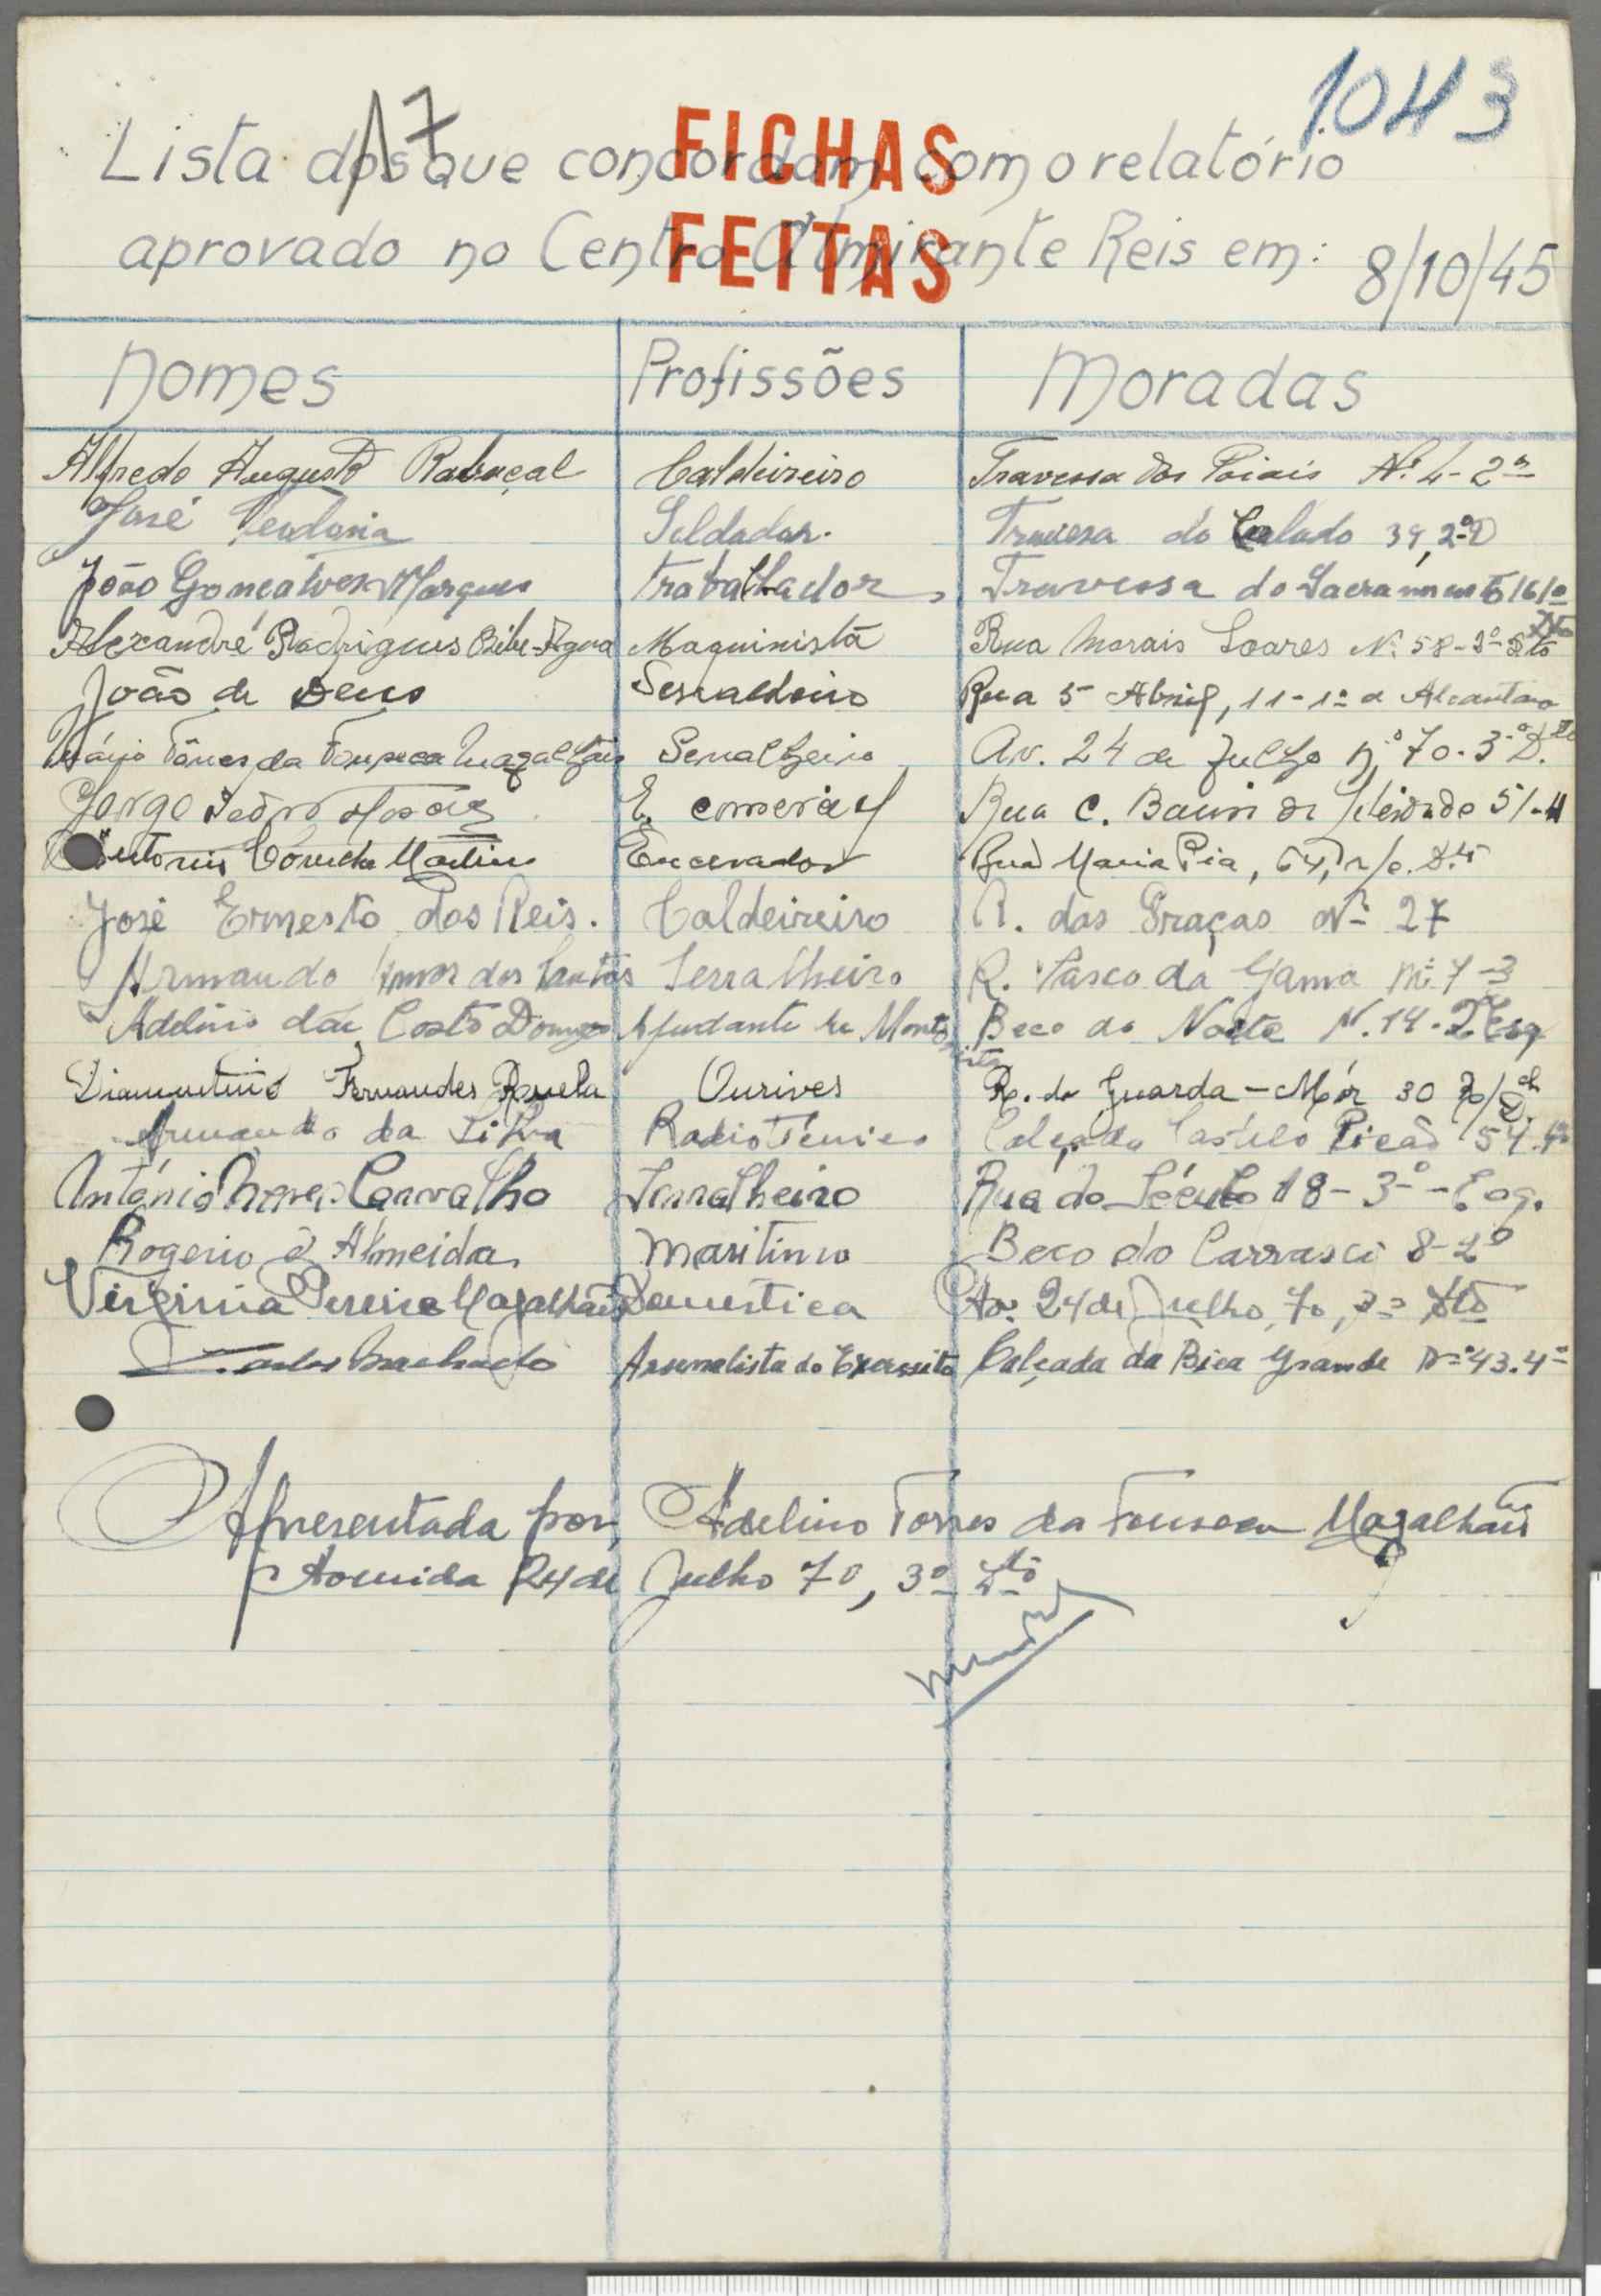 1.043
17
FICHAS
FEITAS
Lista dos que concordam com o relatório
aprovado no Centro Almirante Reis em: 8/10/45
Nomes Profissões Moradas
Alfredo Augusto Rabaçal Caldeireiro Travessa dos Poiais Nº 4-2º
José Soldador. Travesa do Calado 39, 2º D
João Gonçalves Marques Trabalhador Travessa do Sacramento 16 1º
Alexandre Rodrigues Bebe-Agua Maquinista Rua Morais Soares Nº 58-2º Dto
João de Deus Serralheiro Rua 5 Abril, 11-1º a Alcantara
Mário Tôrres da Fonseca Magalhães Serralheiro Av. 24 de Julho nº 70-3º D.to
Jorge Pedro E. comerciaf Rua C.
Antonio Martins Encerador Rua Maria Pia, 64, r/c. D.to
José Ernesto dos Reis. Caldeireiro R. das Graças Nº 27
Armando dos Santos Serralheiro R. Vasco da Gama Nº 7-3
Adelino da Costa Ajudante de Montador Beco do Norte N. 14-2º Esq
Diamantino Fernandes Ourives R. do Guarda-Mór 30 R/c D.
Armando da Silva Radio Técnico Calçada Castelo Picão 54.4º
António Carvalho Serralheiro Rua do Século 18-3º-Esq.
Rogerio d'Almeida Maritimo Beco do Carrasco 8-2º
Virginia Pereira Magalhães Domestica Av. 24 de Julho, 70, 3º Dto
Carlos Machado Arsenalista do Exercito Calçada da Bica Grande Nº 43.4º
Apresentada por, Adelino Torres da Fonseca Magalhães
Avenida 24 de Julho 70, 3º Dto